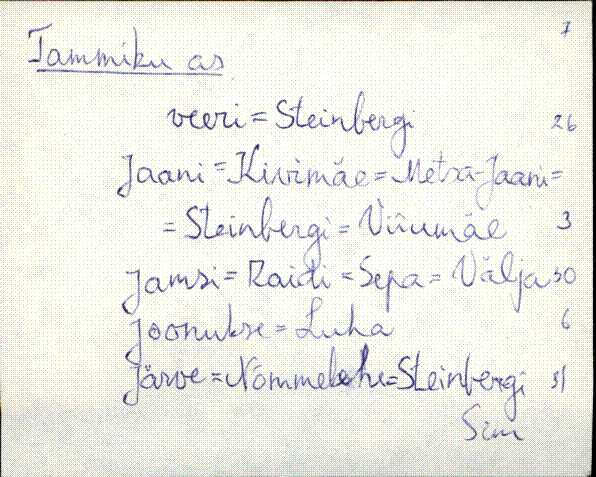 7
Tammiku as
veeri = Steinbergi 26
Jaani = Kivimäe = Metsa-Jaani =
= Steinbergi = Viiumäe 3
Jamsi = Raidi = Sepa = Välja 50
Joonukse = Luha 6
Järve = Nõmmelahe = Steinbergi 51
Sim